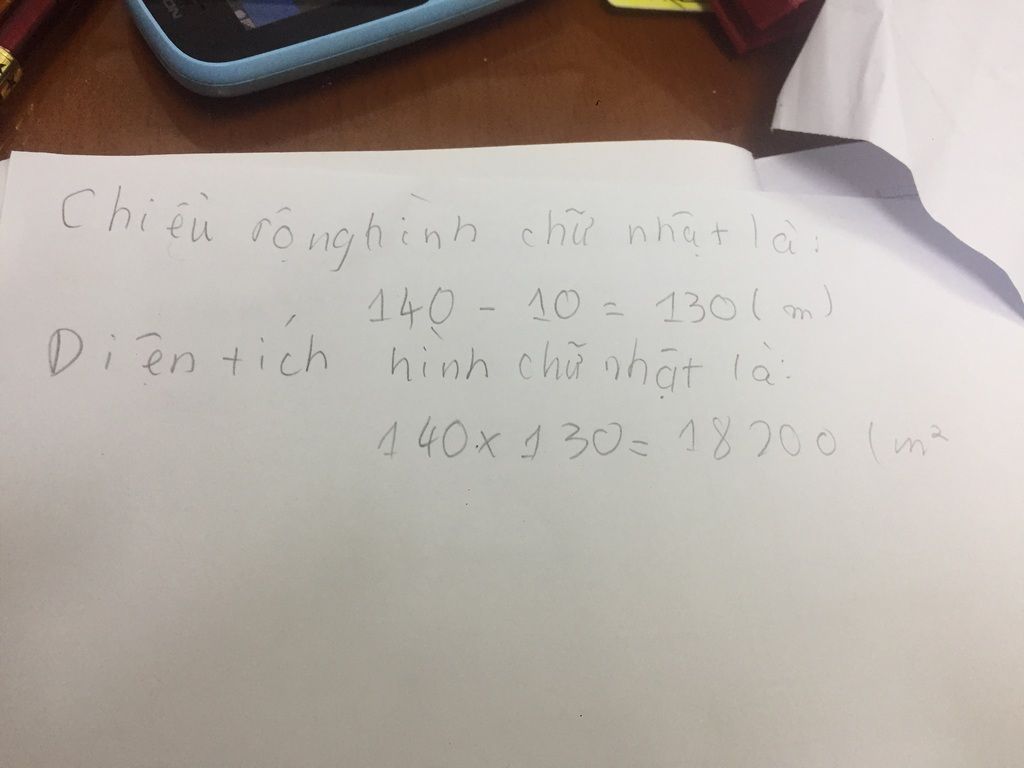 Chiều rộng hình chữ nhật là:
140 - 10 = 130 (m)
Diện tích hình chữ nhật là:
140 x 130 = 18200 (m²